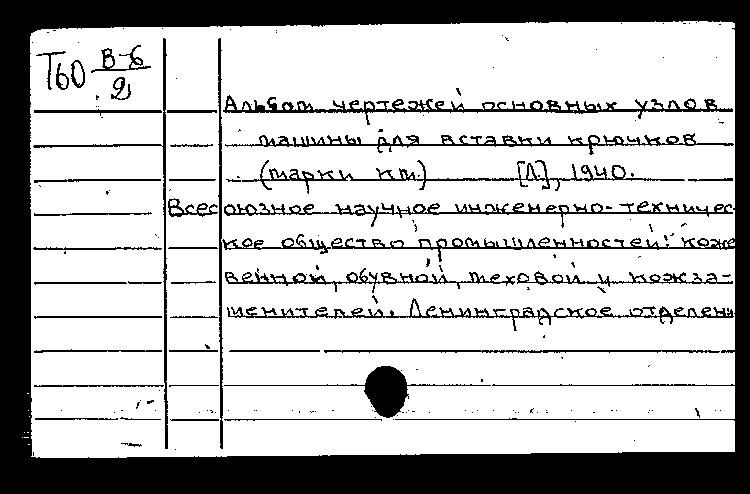 Т60 В-6
2
Альбом чертежей основных узлов
машины для вставки крючков
(марки км) [Л], 1940.
Всесоюзное научное инженерно-техничес
кое общество промышленностей: коже
венной, обувной, меховой и кожза-
менителей. Ленинградское отделени